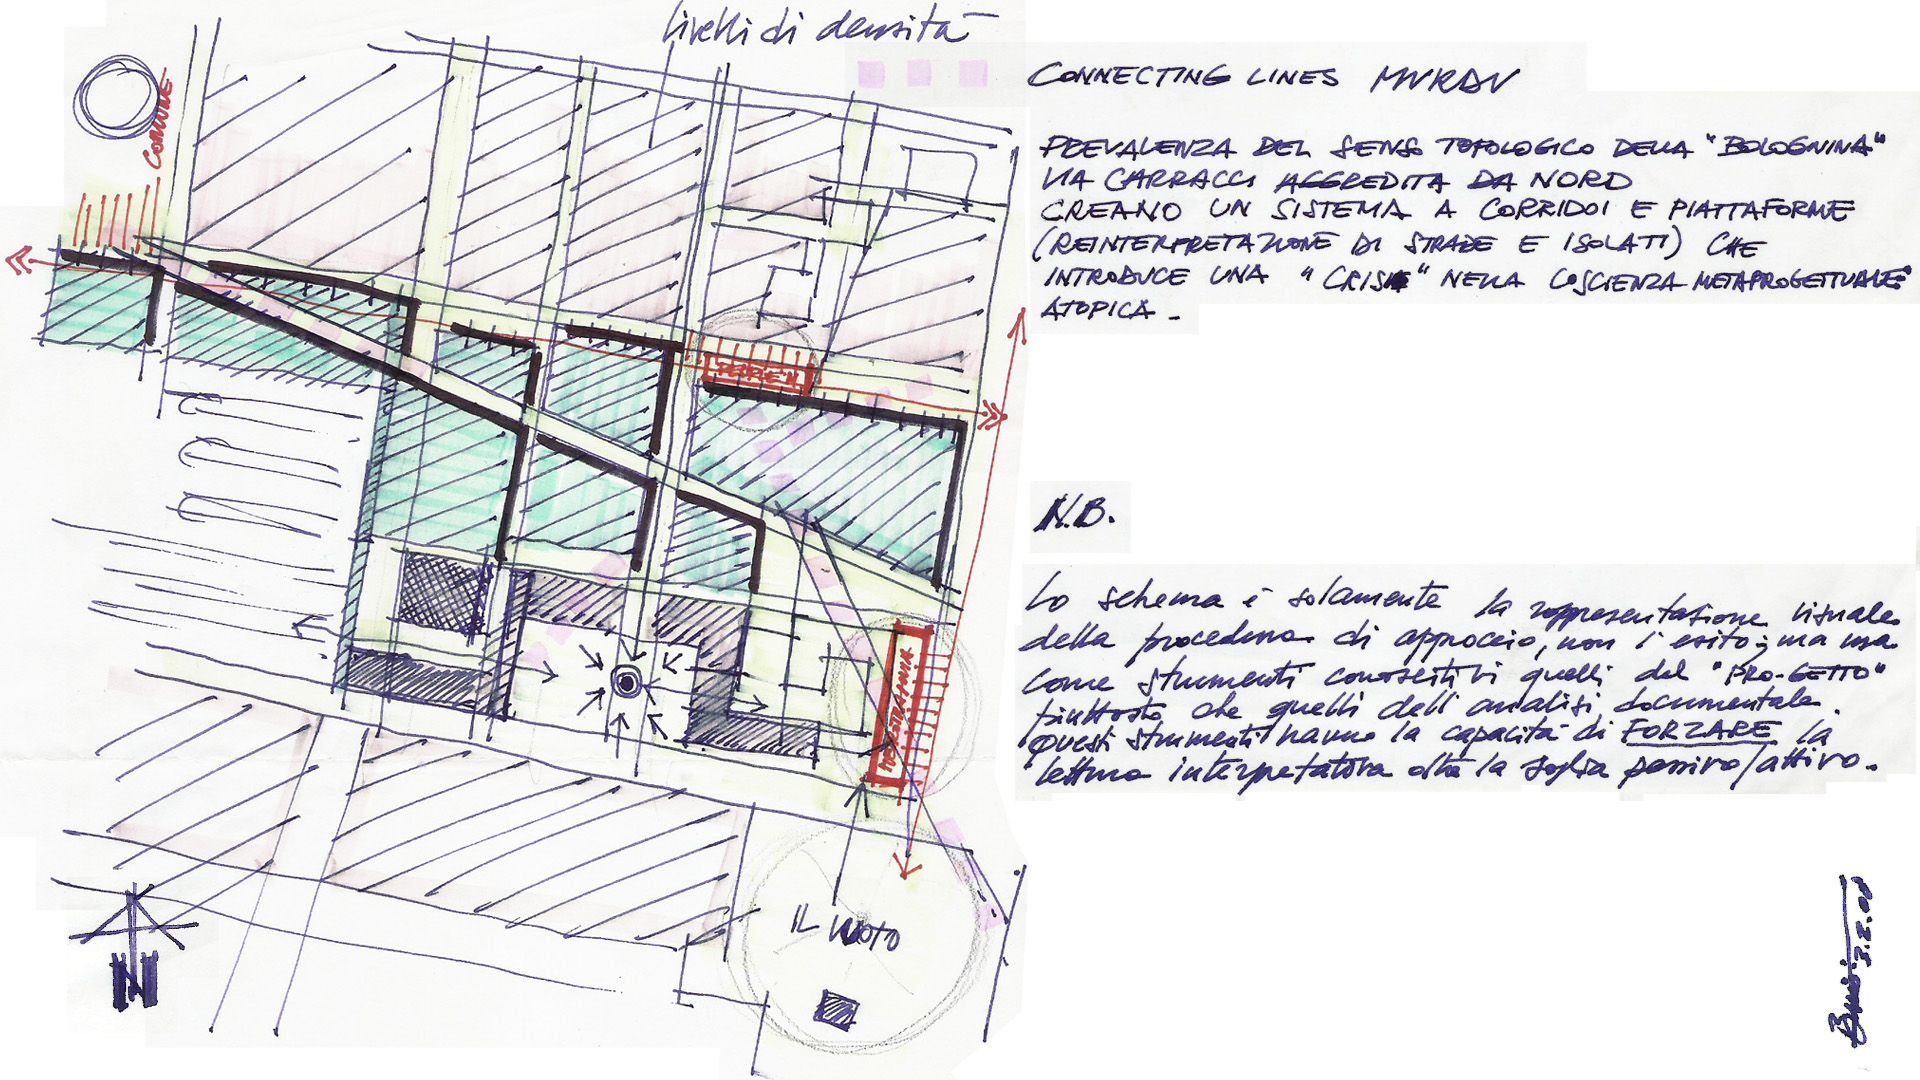 livelli di densità
COMUNE
CONNECTING LINES
PREVALENZA DEL SENSO TOPOLOGICO DELLA "BOLOGNINA"
VIA CARRACCI AGGREDITA DA NORD
CREANO UN SISTEMA A CORRIDOI E PIATTAFORME
(REINTERPRETAZIONE DI STRADE E ISOLATI) CHE
INTRODUCE UNA "CRISI" NELLA COSCIENZA METAPROGETTUALE
ATOPICA -
N.B.
Lo schema è solamente la rappresentazione visuale
della procedura di approccio, non l'esito; ma usa
come strumenti conoscitivi quelli del "PRO-GETTO"
piuttosto che quelli dell'analisi documentale.
Questi strumenti hanno la capacità di FORZARE la
lettura interpretativa oltre la soglia passivo/attivo.
IL VUOTO
N
3.2.00